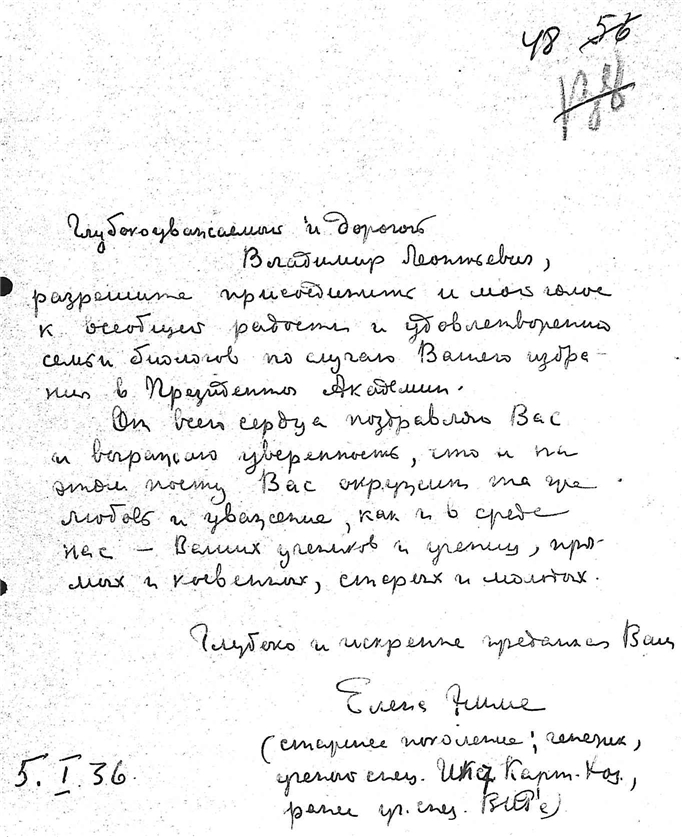 48 56
Глубокоуважаемый и дорогой
Владимир Леонтьевич,
разрешите присоединить и мой голос
к всеобщей радости и удовлетворению
семьи биологов по случаю Вашего избра-
ния в Президенты Академии.
От всего сердца поздравляю Вас
и выражаю уверенность, что и на
этом посту Вас окружит та же
любовь и уважение, как и в среде
нас – Ваших учеников и учениц, пря-
мых и косвенных, старых и молодых.
Глубоко и искренне преданная Вам
Елена Эмме
(старшее поколение; генетик,
ученый спец. Карт. Хоз.,
ранее уч. спец. ВИР'а)
5.I.36.